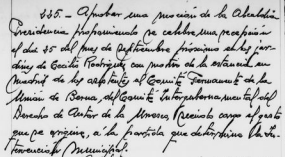 225.- Aprobar una moción de la Alcaldía
Presidencia proponiendo se celebre una recepción
el día 25 del mes de septiembre próximo en los jar-
dines de Cecilio Rodríguez con motivo de la estancia en
Madrid de los asistentes al Comité Permanente de la
Unión de Berna, del Comité Intergubernamental del
Derecho de Autor de la Unesco, siendo cargo el gasto
que se origine, a la partida que determine la In-
tervención Municipal.